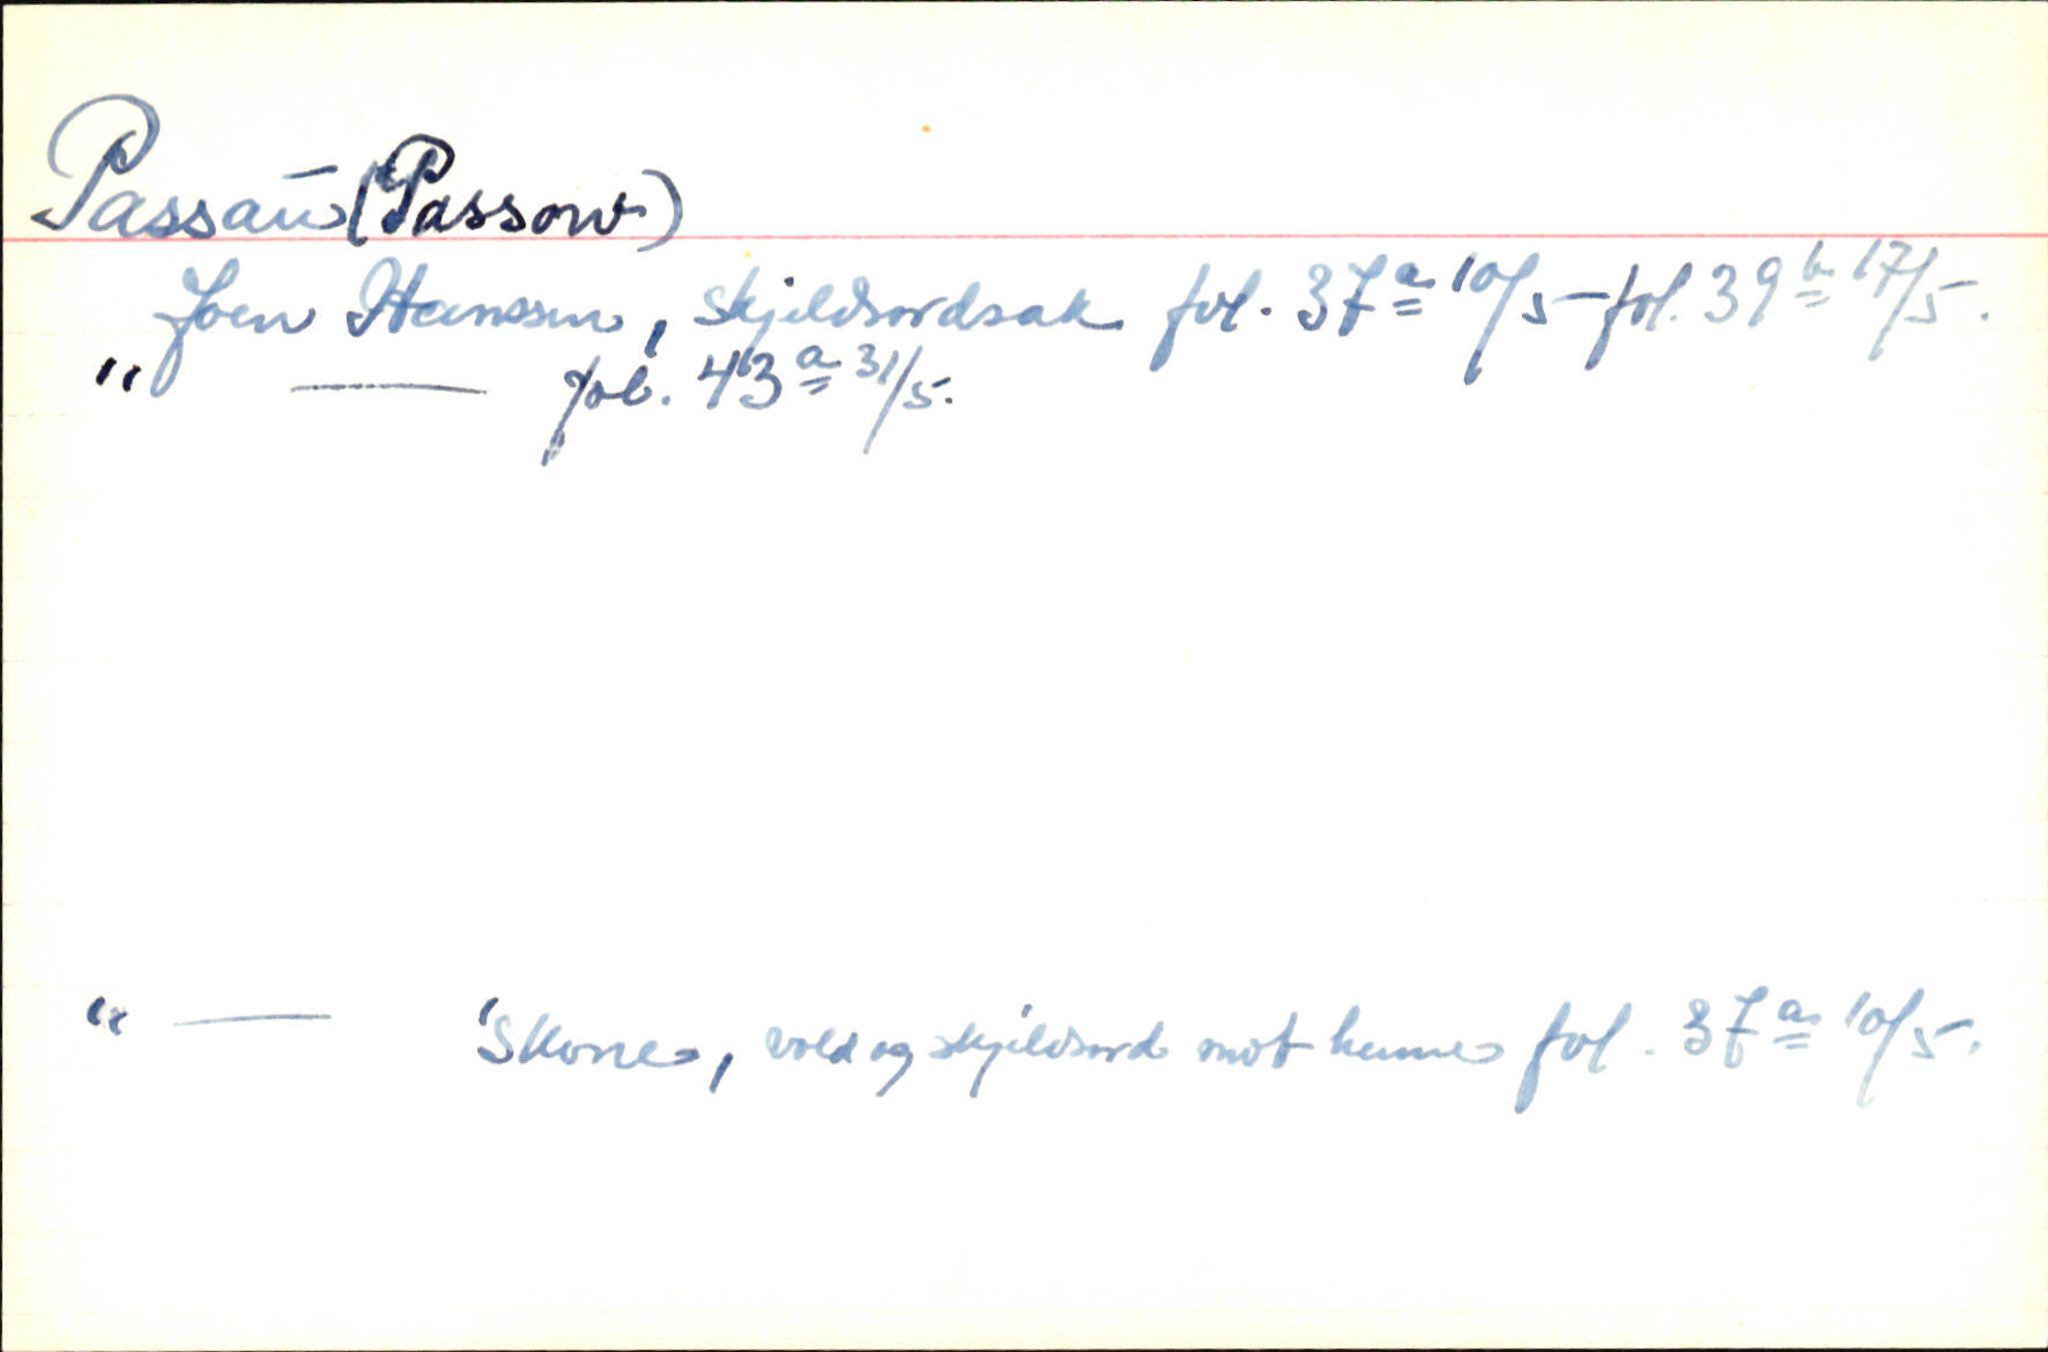 Passau (Passow)
Joen Hanssen, skjeldsordsak fol. 37a 10/5 - fol. 39b 17/5.
" —— fol. 43a 31/5.
" —— 's Kone, vold og skjeldsord mot henne fol. 37a 10/5.